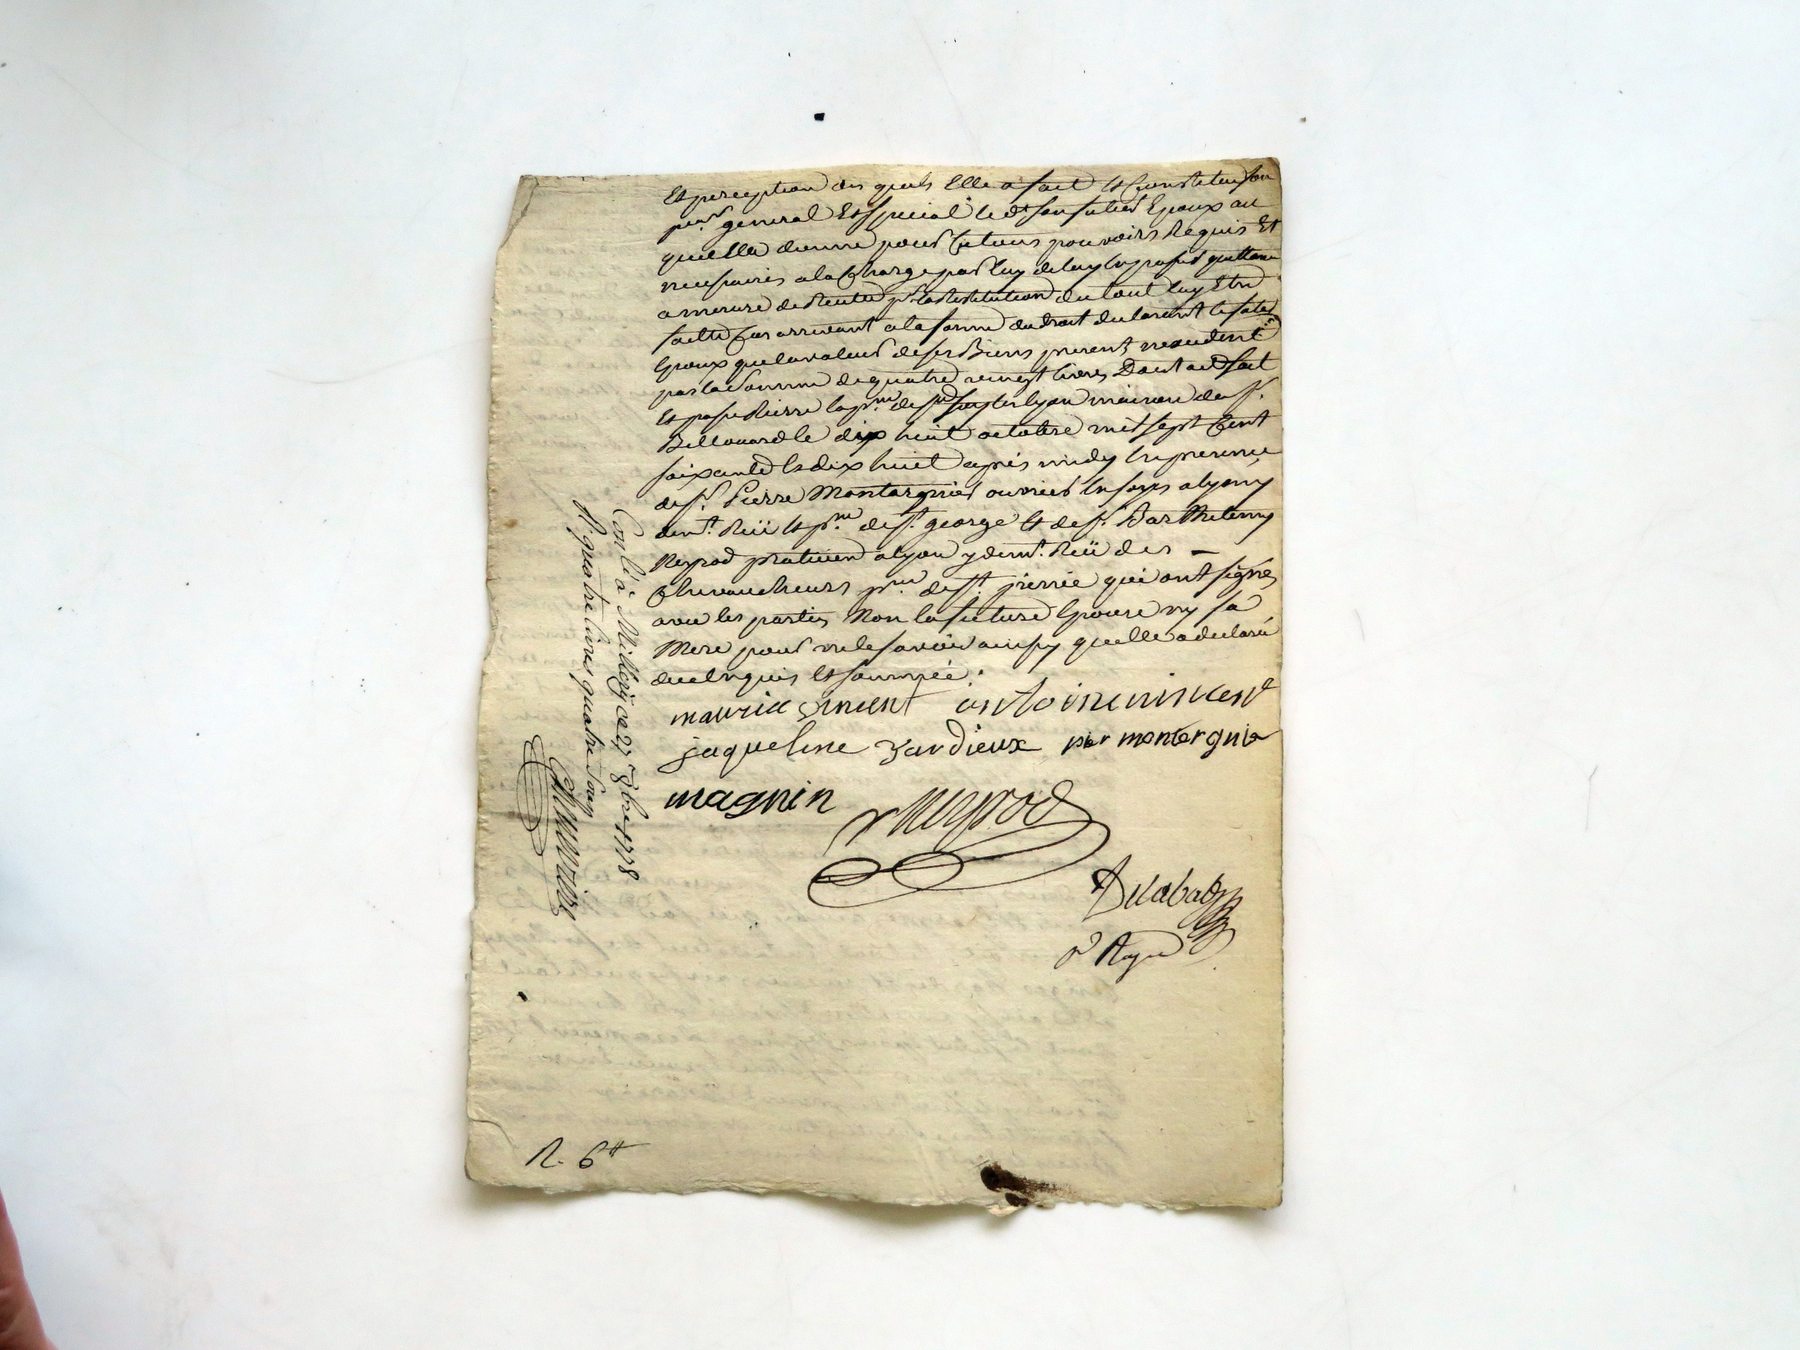 Et perception des quels Elle a fait et Constitué son
pr.r general Et special le dt son futur Epoux au
quel Elle donne pour ce tous pouvoirs Requis Et
necessaires a la Charge par luy de luy En passer quittance
a mesure de Recette pr la Restitution du tout luy Etre
faitte Cas arrivant a la forme du droit declarant le futur
Epoux que la valeur de ses Biens presents n'excedent
pas la somme de quatre vingt livres, Dont acte fait
Et passé Riere la p.sse de Ste foy les lyon maison du sr.
Bellouard le dix huit octobre mil sept Cent
soixante et dix huit après midy En presence
de sr. Pierre Montargnier ouvrier En soye a lyon y
demt. Rüe et p.sse de st. george et de sr. Barthelemy
Neyrod praticien a lyon y demt. Rüe des
Chevaucheurs p.sse de st. jrenée qui ont signés
avec les parties Non la future Epouse ny sa
Mere pour ne le savoir ainsy quelle a declaré
de ce Enquis et sommée.
maurice vincent antoine vincent
jaqueline Tardieux pier montergnie
magnin
Neyrod
Delabas
nre Royal
Con lé a Millery ce 27 8bre 1778
R. quatre livres quatre sous
R. 6tt